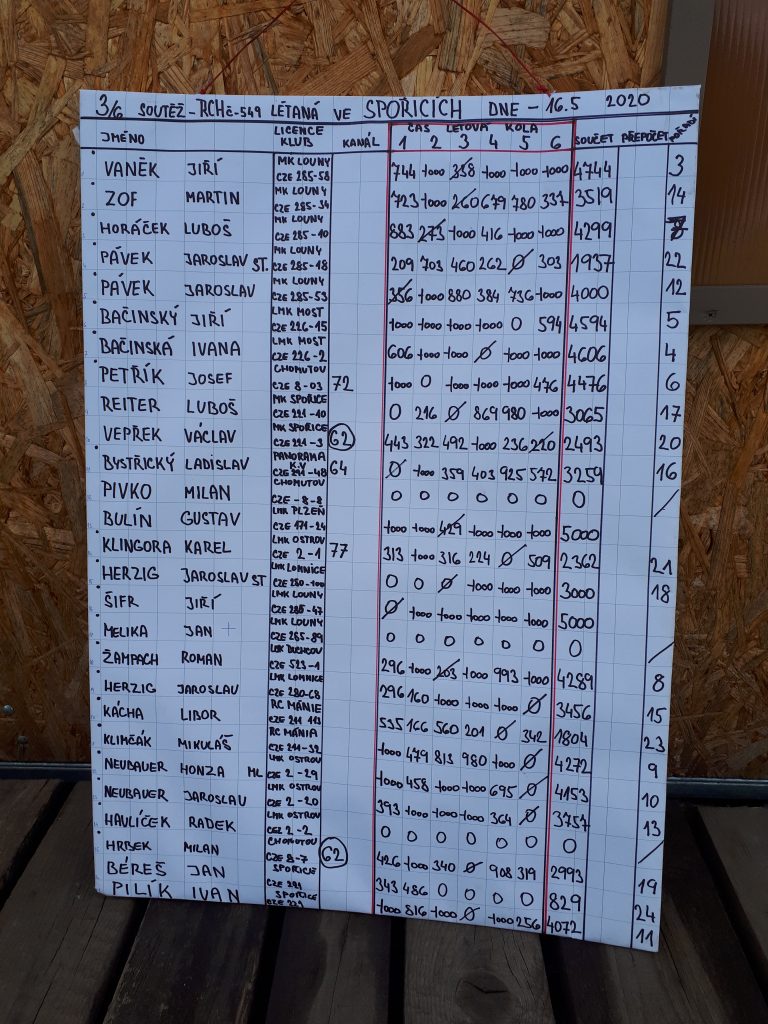 3/6 SOUTĚŽ - RCHč-549 LÉTANÁ VE SPOŘICÍCH DNE - 16.5 2020
JMÉNO LICENCE KLUB KANÁL ČAS LETOVÁ KOLA 1 2 3 4 5 6 SOUČET PŘEPOČET POŘADÍ
VANĚK JIŘÍ MK LOUNY CZE 285-58 744 1000 338 1000 1000 1000 4744 3
ZOF MARTIN MK LOUNY CZE 285-34 723 1000 260 679 780 337 3519 14
HORÁČEK LUBOŠ MK LOUNY CZE 285-10 883 273 1000 416 1000 1000 4299
PÁVEK JAROSLAV ST. MK LOUNY CZE 285-18 209 703 460 262 0 303 1937 22
PÁVEK JAROSLAV MK LOUNY CZE 285-53 356 1000 880 384 736 1000 4000 12
BAČINSKÝ JIŘÍ LMK MOST CZE 226-15 1000 1000 1000 1000 0 594 4594 5
BAČINSKÁ IVANA LMK MOST CZE 226-2 606 1000 1000 0 1000 1000 4606 4
PETŘÍK JOSEF CHOMUTOV CZE 8-03 72 1000 0 1000 1000 1000 476 4476 6
REITER LUBOŠ MK SPOŘICE CZE 211-10 0 216 0 869 980 1000 3065 17
VEPŘEK VÁCLAV MK SPOŘICE CZE 211-3 62 443 322 492 1000 236 220 2493 20
BYSTŘICKÝ LADISLAV PANORAMA K.V CZE 211-48 64 0 1000 359 403 925 572 3259 16
PIVKO MILAN CHOMUTOV CZE -8-8 0 0 0 0 0 0 0 /
BULÍN GUSTAV LMK PLZEŇ CZE 171-24 1000 1000 429 1000 1000 1000 5000
KLINGORA KAREL LMK OSTROV CZE 2-1 77 313 1000 316 224 0 509 2362 21
HERZIG JAROSLAV ST LMK LOMNICE CZE 280-100 0 0 0 1000 1000 1000 3000 18
ŠIFR JIŘÍ LMK LOUNY CZE 285-47 0 1000 1000 1000 1000 1000 5000
MELIKA JAN LMK LOUNY CZE 265-89 0 0 0 0 0 0 0 /
ŽAMPACH ROMAN LMK DUCHCOV CZE 523-1 296 1000 203 1000 993 1000 4289 8
HERZIG JAROSLAV LMK LOMNICE CZE 280-68 296 160 1000 1000 1000 0 3456 15
KÁCHA LIBOR RC MÁNIE CZE 211 113 535 166 560 201 0 342 1804 23
KLIMČÁK MIKULÁŠ RC MÁNIA CZE 211-32 1000 479 813 980 1000 0 4272 9
NEUBAUER HONZA ML LMK OSTROV CZE 2-29 1000 458 1000 1000 695 0 4153 10
NEUBAUER JAROSLAV LMK OSTROV CZE 2-20 393 1000 1000 1000 364 0 3757 13
HAVLÍČEK RADEK LMK OSTROV CEZ 2-2 0 0 0 0 0 0 0 /
HRBEK MILAN CHOMUTOV CZE 8-7 62 426 1000 340 0 908 319 2993 19
BÉREŠ JAN SPOŘICE CZE 221 343 486 0 0 0 0 829 24
PILÍK IVAN SPOŘICE CZE 221 1000 816 1000 0 1000 256 4072 11